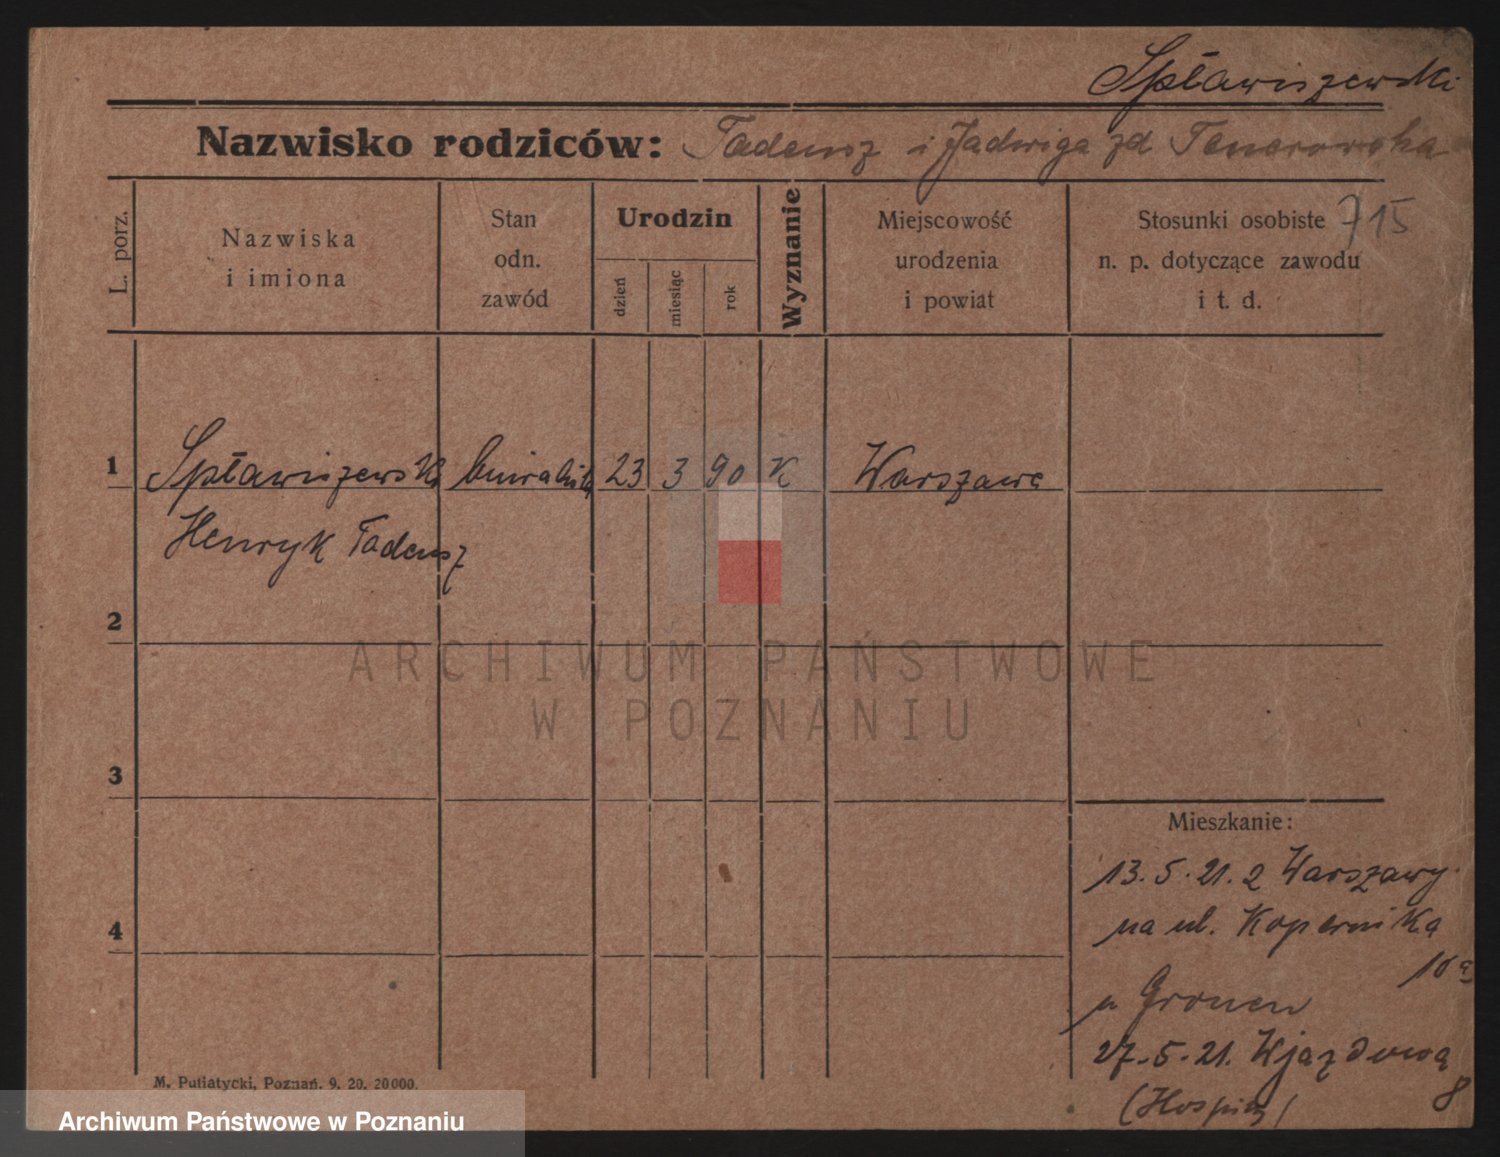 Spławiszewski
Nazwisko rodziców: Tadeusz i Jadwiga zd
715
L. porz.
Nazwiska
i imiona
Stan
odn.
zawód
Urodzin
dzień
miesiąc
rok
Wyznanie
Miejscowość
urodzenia
i powiat
Stosunki osobiste
n. p. dotyczące zawodu
i t. d.
1 Spławiszewski 23 3 90 K Warszawa
Henryk Tadeusz
2
3
4
Mieszkanie:
13.5.21. z Warszawy
na ul. Kopernika
10a
u Gronen
27.5.21. Wjazdowa
8
M. Putiatycki, Poznań. 9. 20. 20000.
ARCHIWUM PAŃSTWOWE
W POZNANIU
Archiwum Państwowe w Poznaniu